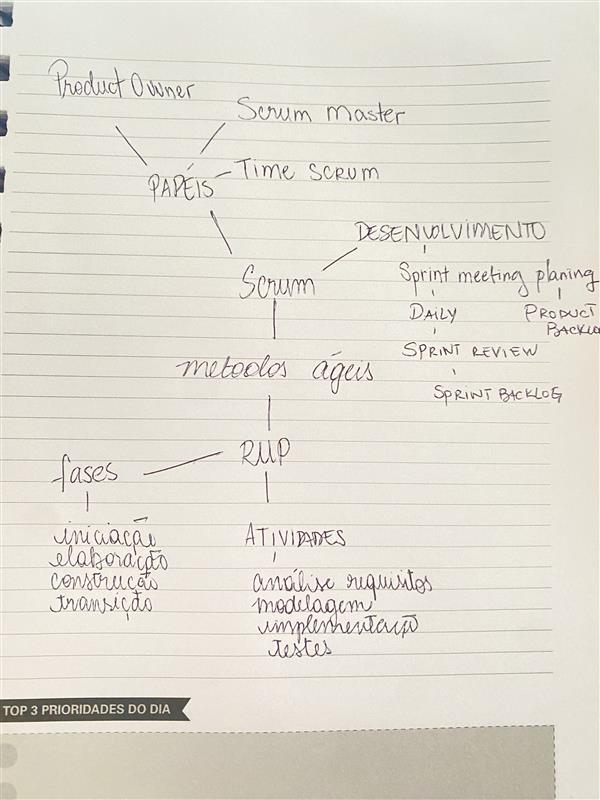 Product Owner
Scrum master
Time scrum
PAPÉIS
DESENVOLVIMENTO
Scrum
Sprint meeting planing
DAILY
PRODUCT
BACKLO
SPRINT REVIEW
metodos ágeis
SPRINT BACKLOG
RUP
fases
iniciação
elaboração
construção
transição
ATIVIDADES
análise requisitos
modelagem
implementação
testes
TOP 3 PRIORIDADES DO DIA